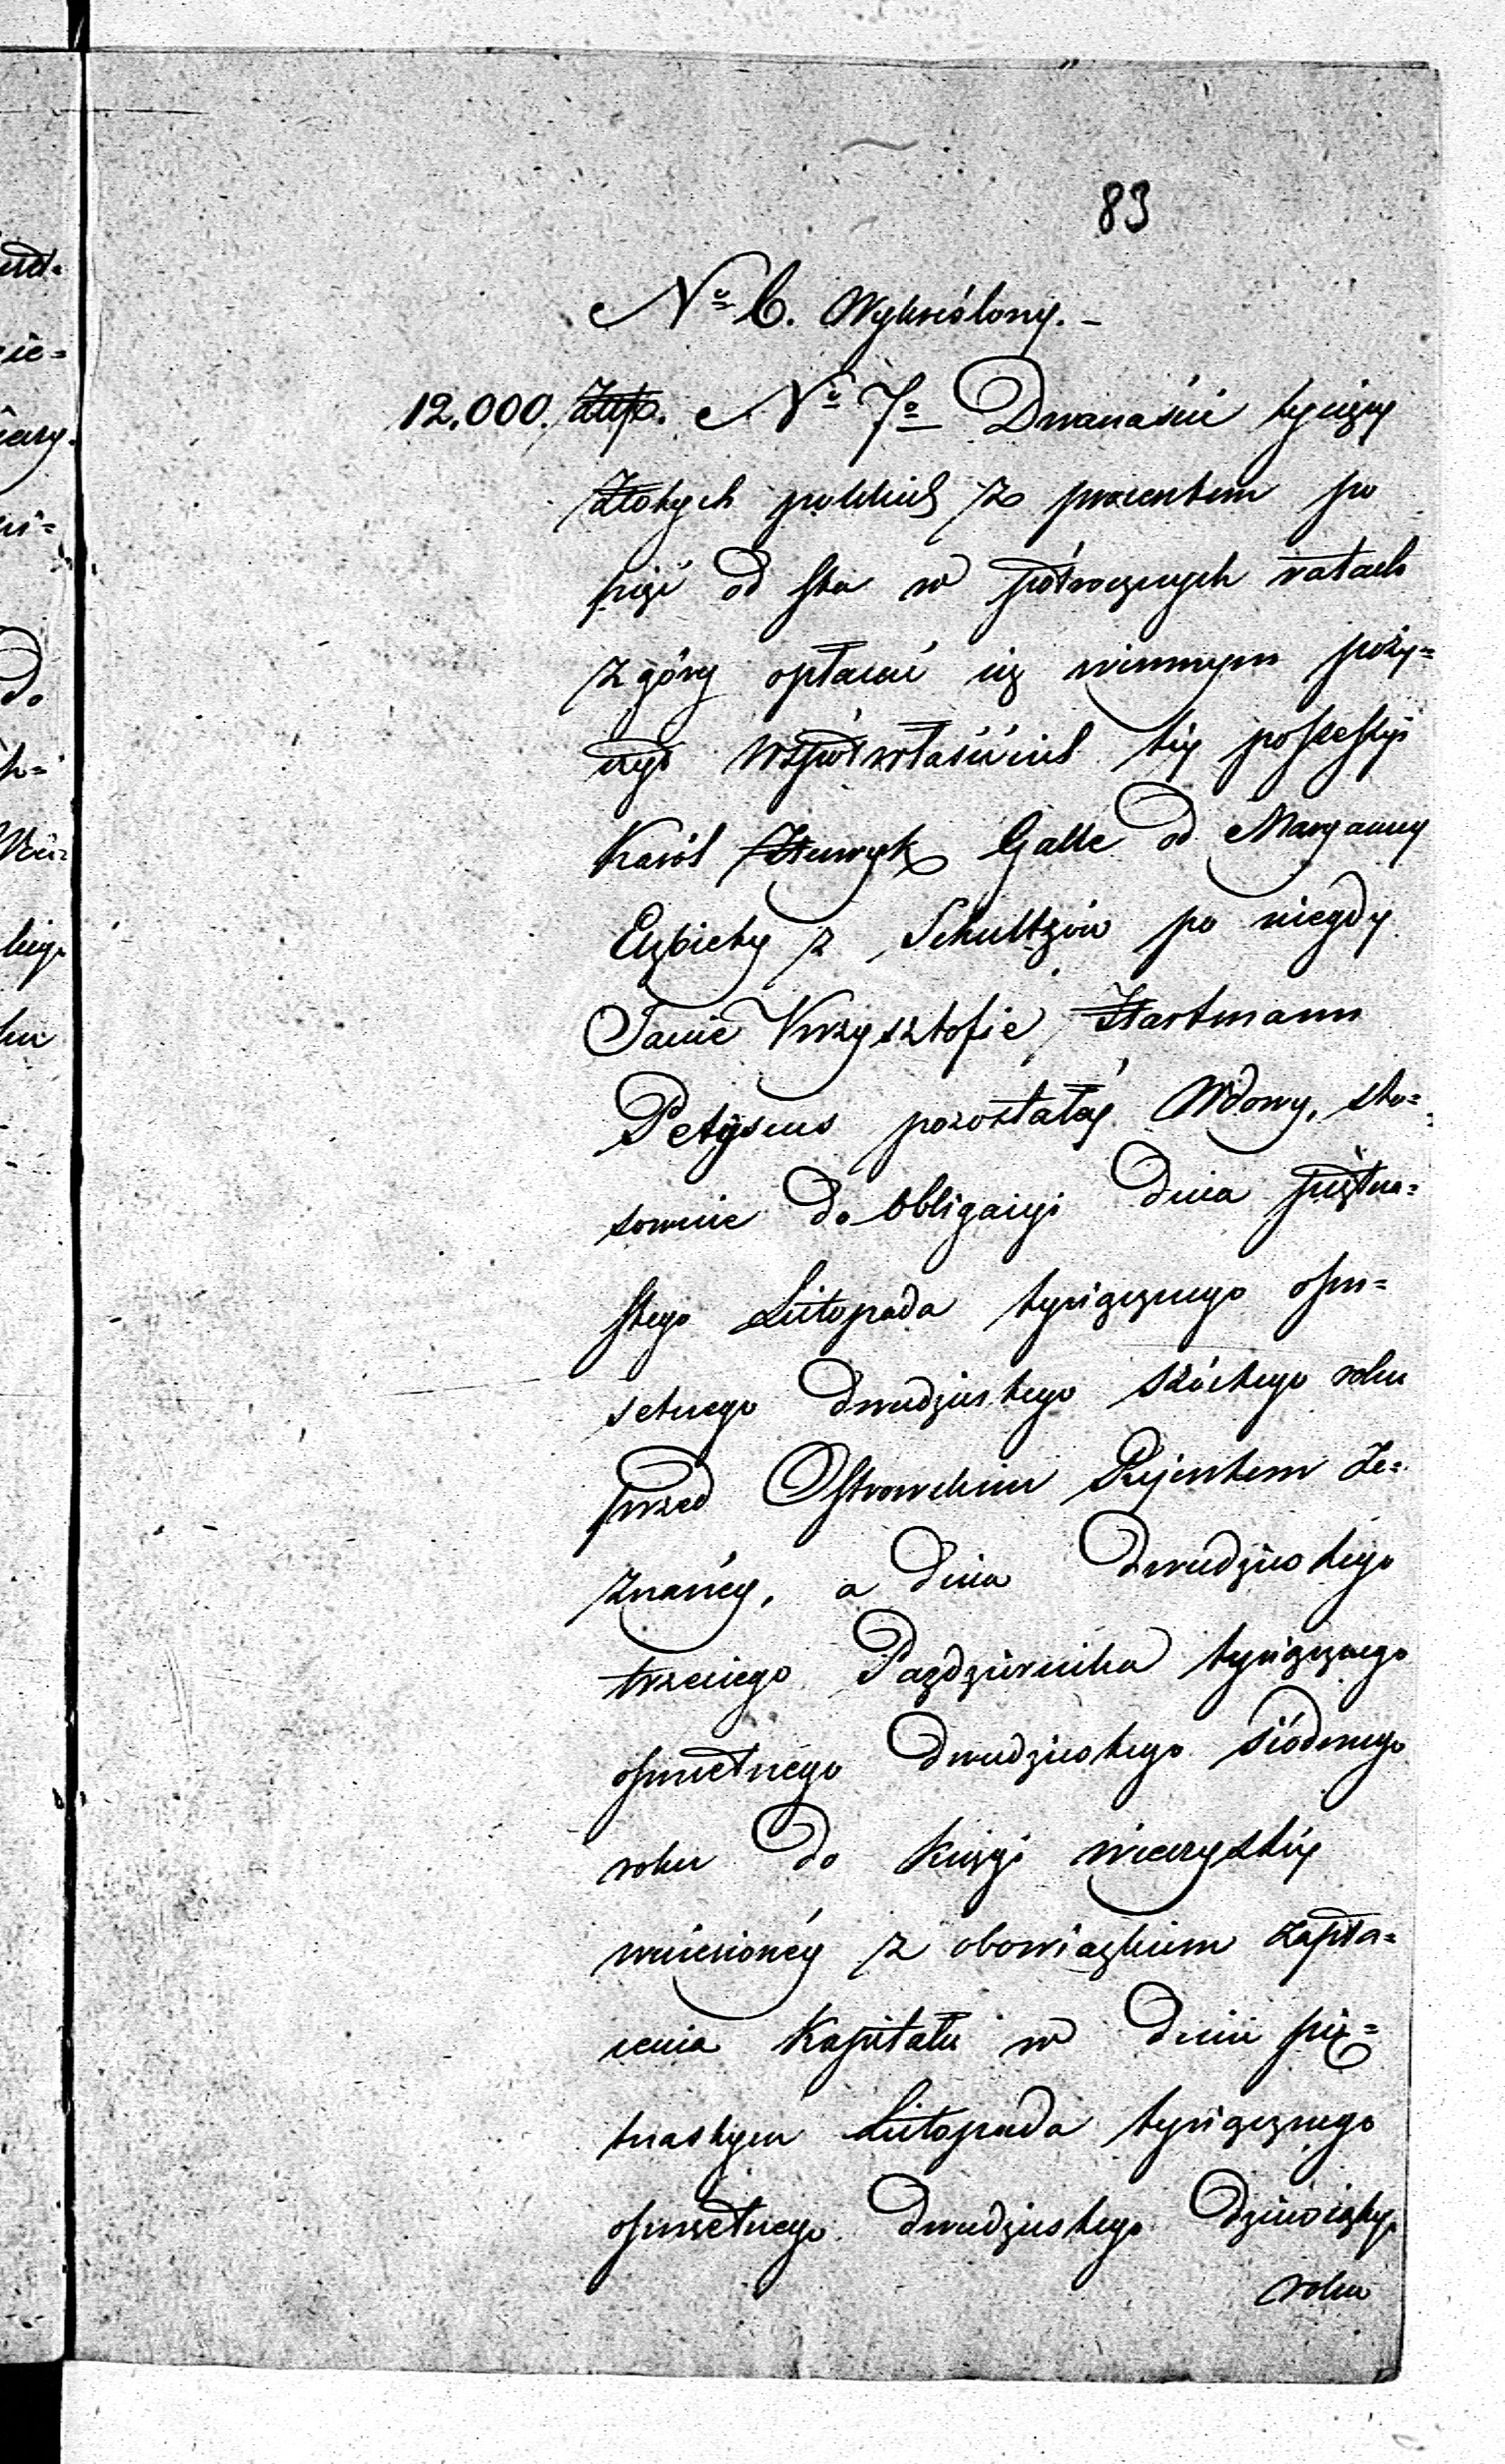 83
Nº 6. Wykreślony. -
12.000. Złtp. Nº 7º Dwanaście tysięcy
złotych polskich z procentem po
pięć od sta w półrocznych ratach
z góry opłacać się winnym poży=
czył współwłaściciel tej possessyi
Karól Henryk Galle od Maryanny
Elżbiety z Schultzów po niegdy
Janie Krzysztofie Hartmann
Petyscus pozostałej Wdowy, sto=
sownie do Obligacyi dnia piętna=
stego Listopada tysiącznego ośm=
setnego dwudziestego szóstego roku
przed Ostrowskim Rejentem ze=
znanéy, a dnia dwudziestego
trzeciego Października tysiącznego
ośmsetnego dwudziestego siódmego
roku do księgi wieczystéy
wniesionéy z obowiązkiem zapła=
cenia kapitału w dniu pię=
tnastym Listopada tysiącznego
ośmsetnego dwudziestego dziewiątego
roku